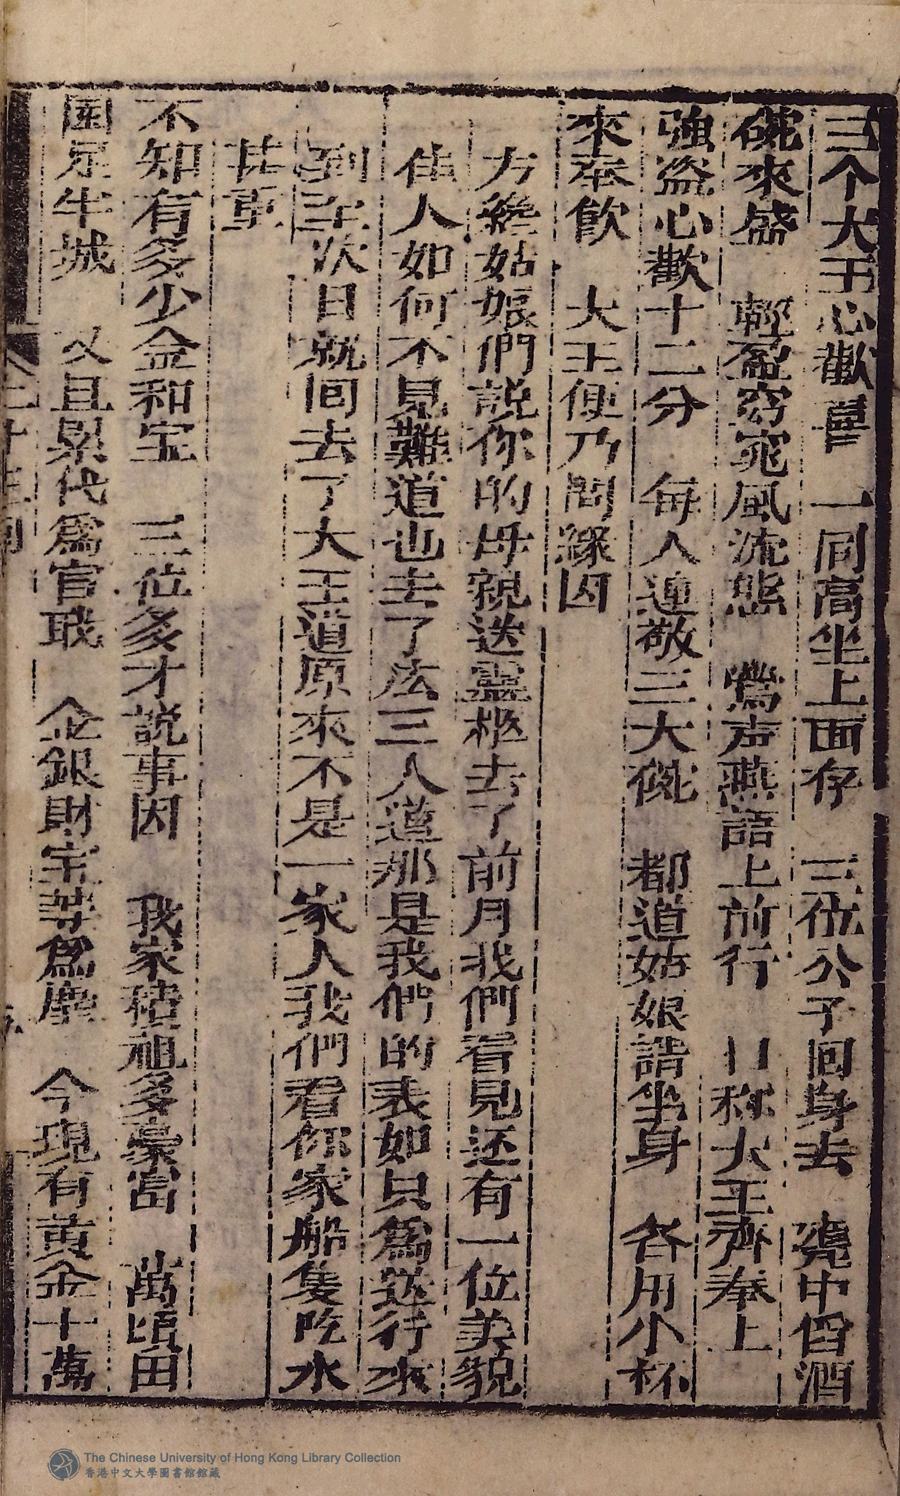 三个大王心歡喜　一同高坐上面存　三位公子回身去　甕中酒
碗來盛　輕盈窈窕風流態　鶯声燕語上前行　口称大王齊奉上
強盗心歡十二分　每人連敬三大碗　都道姑娘請坐身　各用小杯
來奉飲　大王便乃問緣因
方纔姑娘們説你的母親送靈柩去了前月我們看見还有一位美貌
佳人如何不見難道也去了広三人道那是我們的表如只爲送行來
到至次日就囬去了大王道原來不是一家人我們看你家船隻吃水
甚重
不知有多少金和宝　三位多才説事因　我家積祖多豪富　萬頃田
园足牛城　又且累代爲官职　金銀財宝等爲塵　今現有黄金十萬
The Chinese University of Hong Kong Library Collection
香港中文大學圖書館館藏